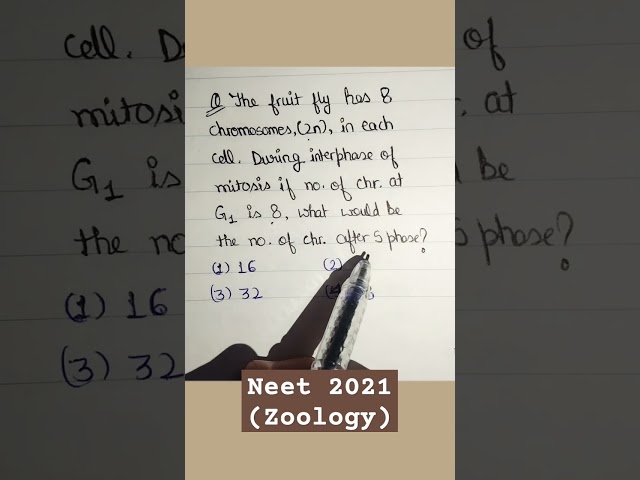 Q The fruit fly has 8
chromosomes, (2n), in each
cell. During interphase of
mitosis if no. of chr. at
G₁ is 8, what would be
the no. of chr. after S phase?
(1) 16 (2)
(3) 32
Neet 2021
(Zoology)